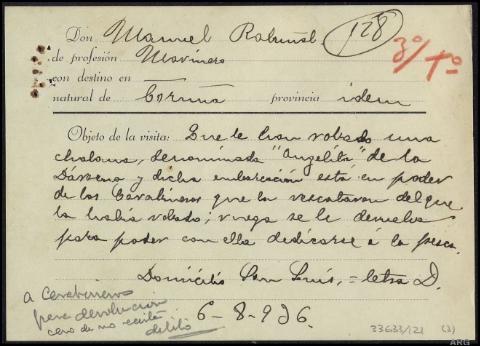 Don Manuel Rabuñal 128
de profesión Marinero 3º/1º
con destino en —
natural de Coruña provincia idem
Objeto de la visita: Que le han robado una
chalana, denominada "Angelita" de la
Dársena y dicha embarcación está en poder
de los Carabineros que la rescataron del que
la había robado; ruega se le devuelva
para poder con ella dedicarse á la pesca.
Domicilio San Luis, = letra D.
a Carabineros
para devolucion
caso de no existir
delito
6-8-936.
33633/121 (3)
ARG